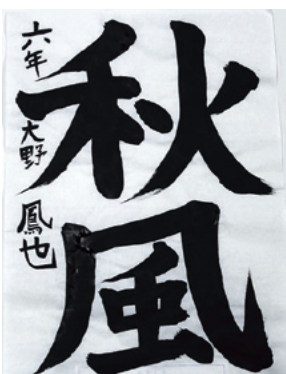 秋風
六年 大野 鳳也